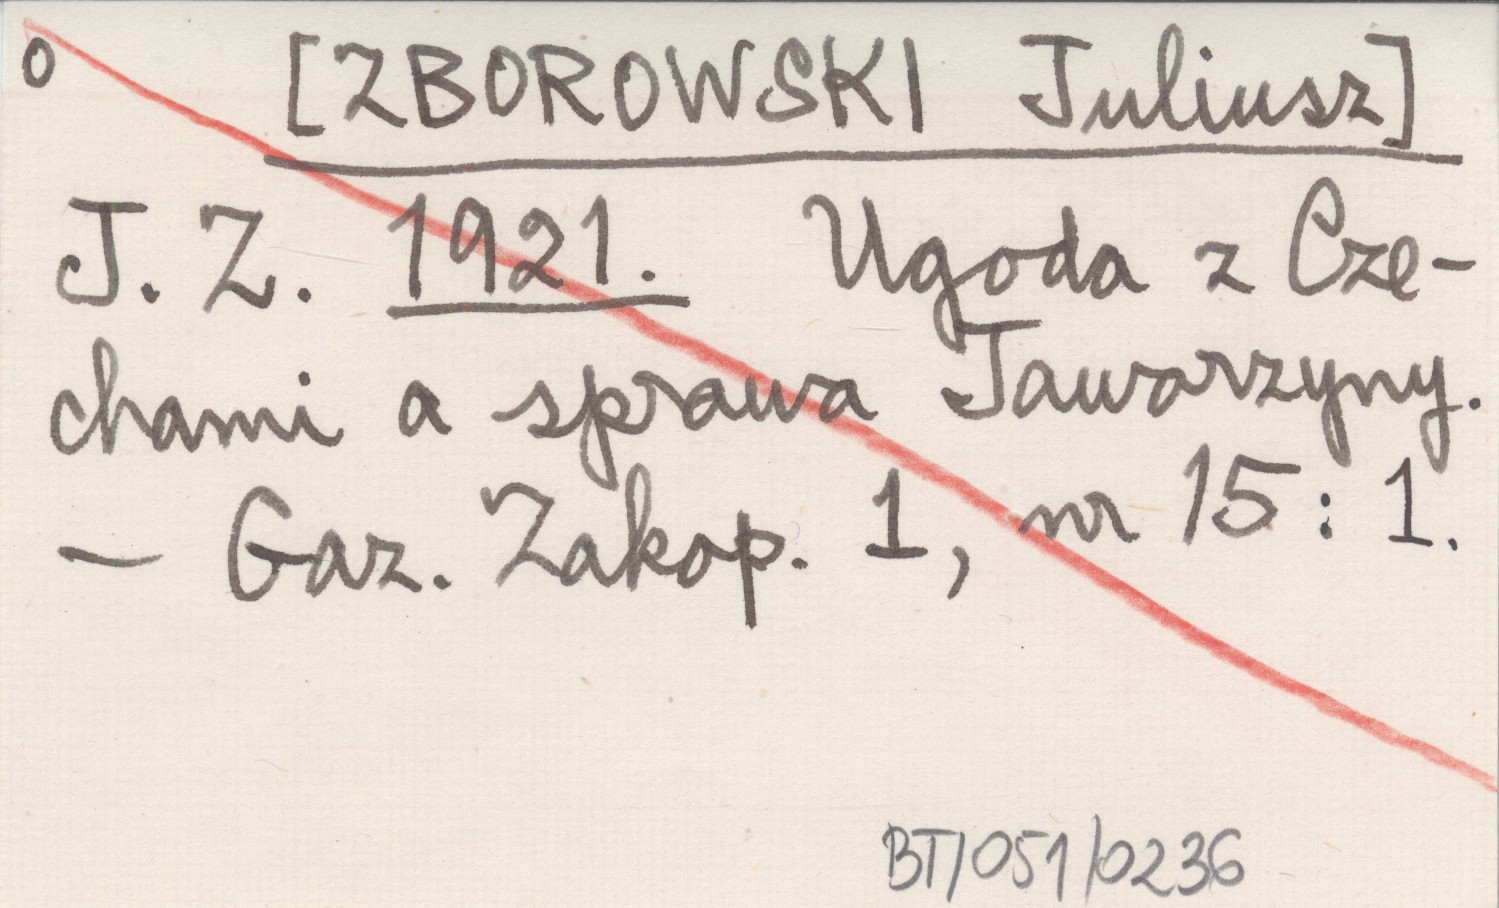 o [ZBOROWSKI Juliusz]
J. Z. 1921. Ugoda z Cze-
chami a sprawa Jaworzyny.
— Gaz. Zakop. 1, nr 15 : 1.
BT/051/0236